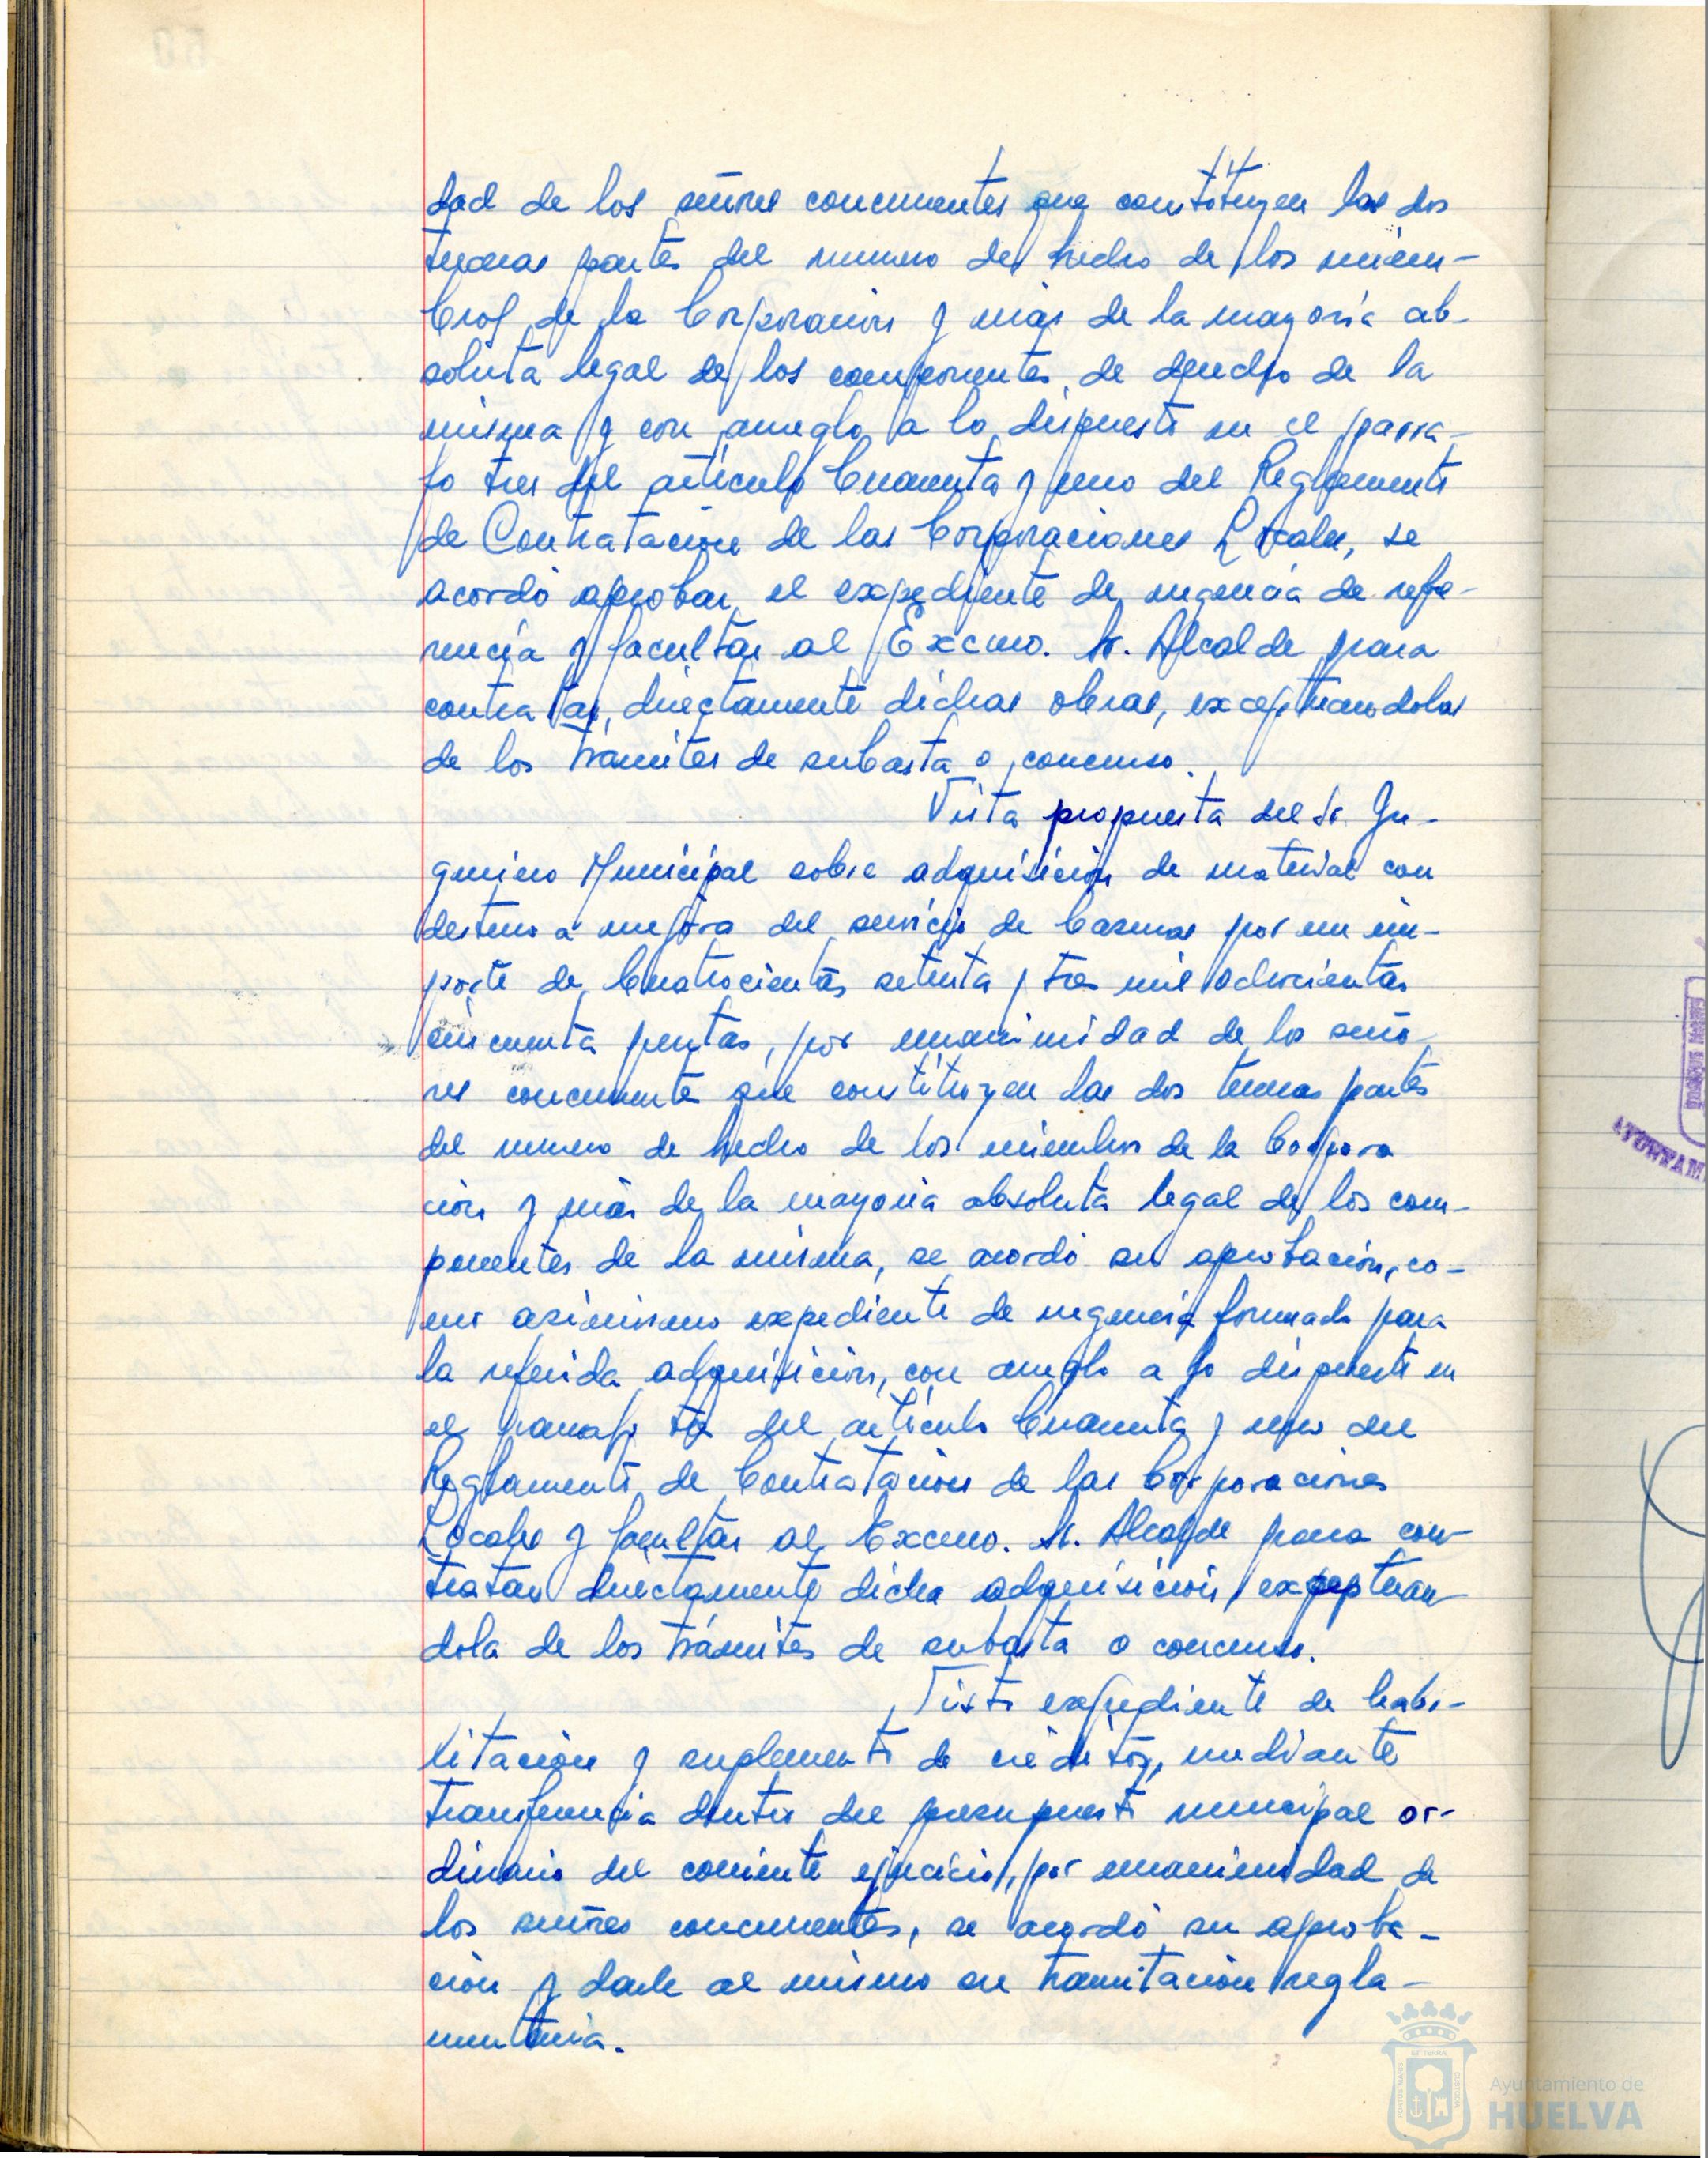 dad de los señores concurrentes que constituyen las dos
terceras partes del numero de hecho de los miem-
bros de la Corporacion y mas de la mayoria ab-
soluta legal de los componentes de derecho de la
misma y con arreglo a lo dispuesto en el parra-
fo tres del articulo Cuarenta y uno del Reglamento
de Contratacion de las Corporaciones Locales, se
acordó aprobar el expediente de urgencia de refe-
rencia y facultar al Excmo. Sr. Alcalde para
contratar directamente dichas obras, exceptuandolas
de los trámites de subasta o concurso.
Vista propuesta del Sr. In-
geniero Municipal sobre adquisicion de material con
destino a mejora del servicio de basuras por un im-
porte de Cuatrocientas setenta y tres mil ochocientas
cincuenta pesetas, por unanimidad de los seño-
res concurrentes que constituyen las dos terceras partes
del numero de hecho de los miembros de la Corpora
cion y más de la mayoria absoluta legal de los com-
ponentes de la misma, se acordó su aprobacion, co-
mo asimismo expediente de urgencia formado para
la referida adquisicion, con arreglo a lo dispuesto en
el parrafo tres del articulo Cuarenta y uno del
Reglamento de Contratacion de las Corporaciones
Locales y facultar al Excmo. Sr. Alcalde para con-
tratar directamente dicha adquisicion, exceptuan-
dola de los trámites de subasta o concurso.
Visto expediente de habi-
litacion y suplemento de créditos, mediante
transferencia dentro del presupuesto municipal or-
dinario del corriente ejercicio, por unanimidad de
los señores concurrentes, se acordó su aproba-
cion y darle al mismo su tramitacion regla-
mentaria.
Ayuntamiento de
HUELVA